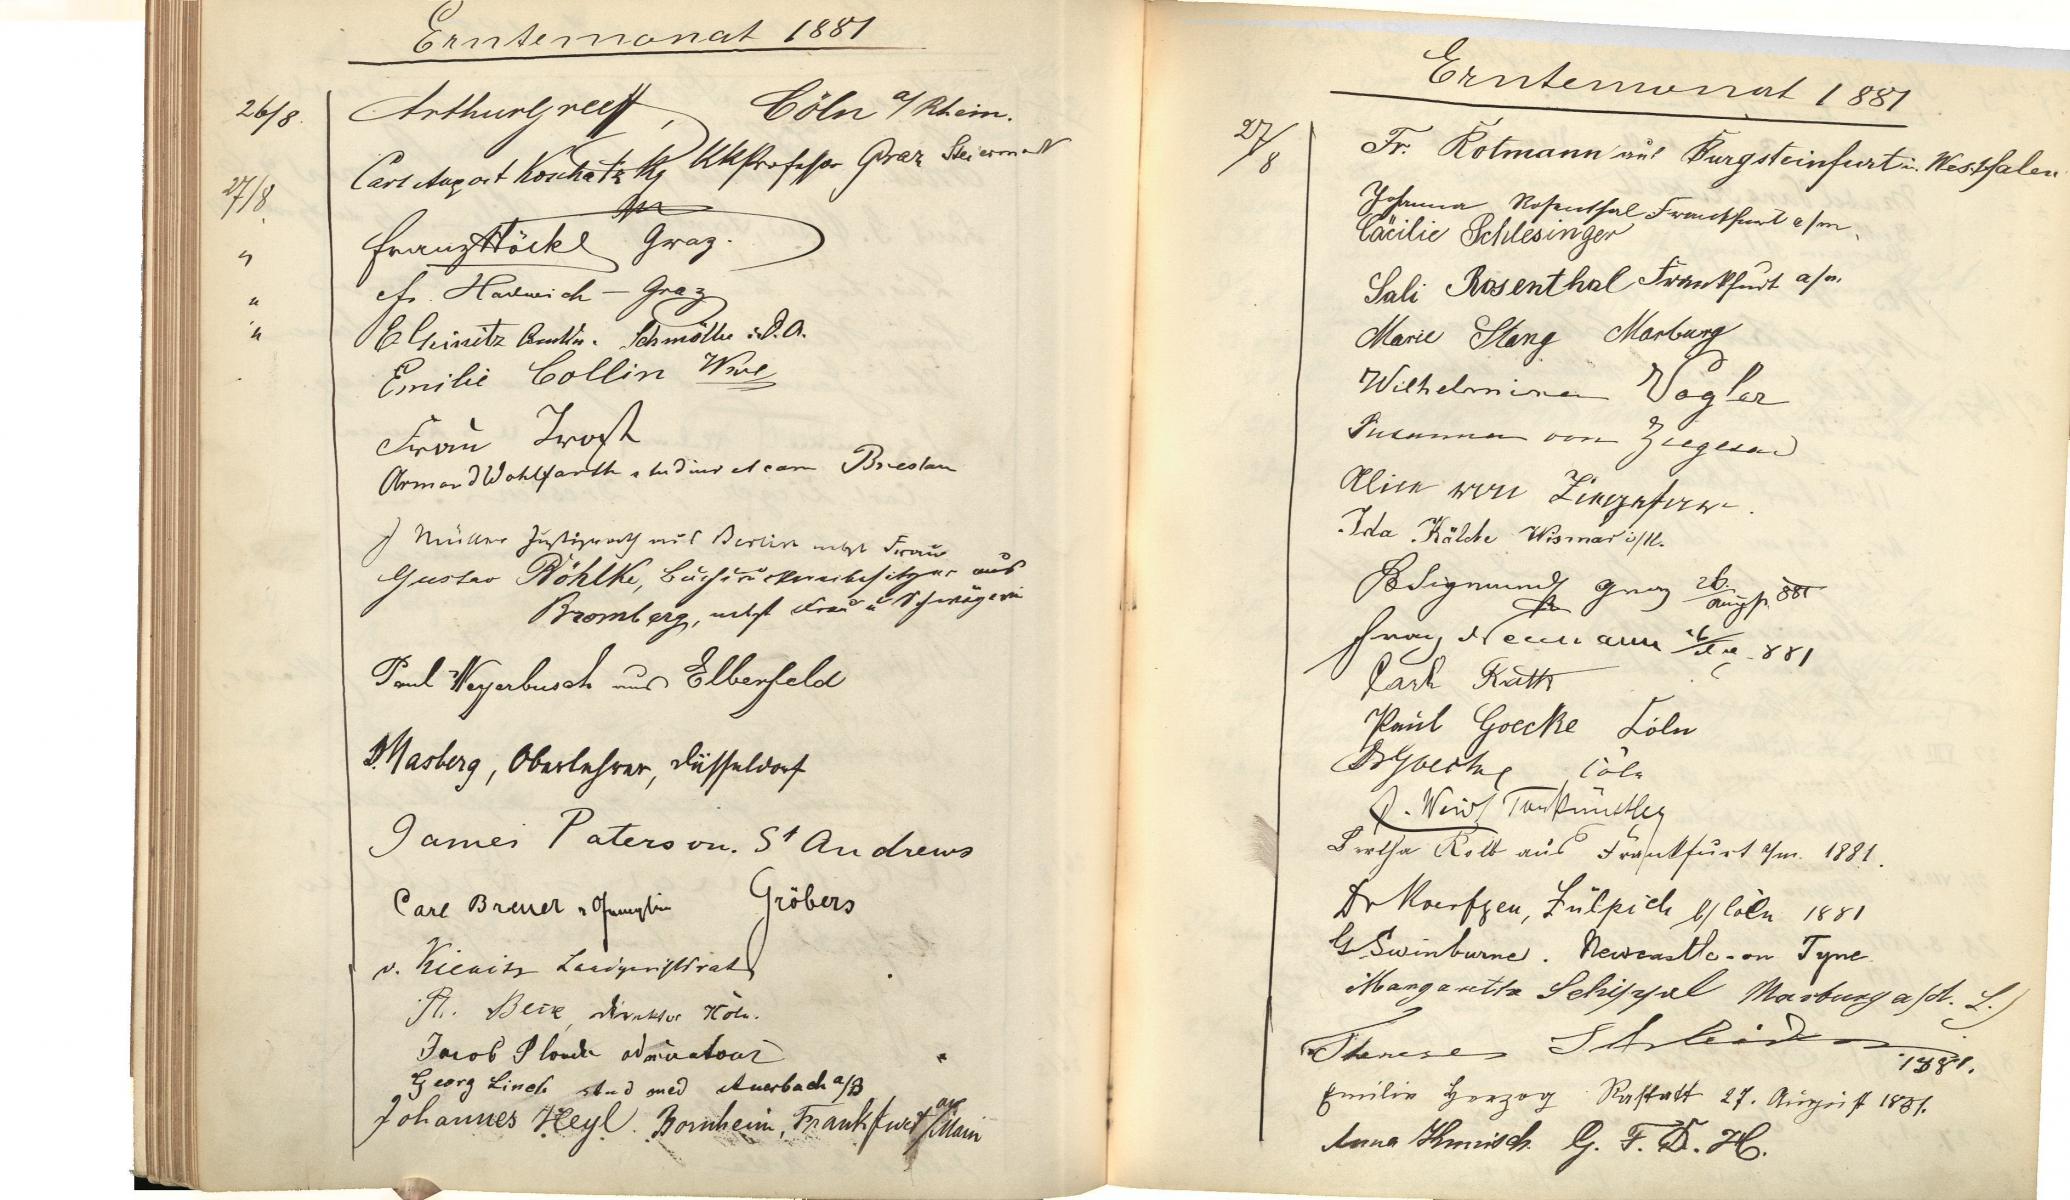 Erntemonat 1881
26/8. Arthur Greeff, Cöln a/Rhein.
27/8. Carl August KKProfessor Graz Steiermark
" Franz Höckl Graz.
" Fr. Harwich – Graz
" E Geinitz Schmölln i. S. A.
Emilie Collin Wwe
Frau Trost
Armand Wohlfarth Breslau
Müller Justizrath aus Berlin nebst Frau
Gustav Böhlke, Buchdruckereibesitzer aus
Bromberg, nebst Frau u Schwägerin
Paul Weyerbusch aus Elberfeld
Dr. Masberg, Oberlehrer, Düsseldorf
James Paterson. St Andrews
Carl Breuer Gröbers
v. Landgerichtsrath
Beck, Direktor Köln.
Jacob
Georg Linck stud med Auerbach a/B
Johannes Heyl. Bornheim, Frankfurt am/Main
Erntemonat 1881
27/8 Fr. Rotmann aus Burgsteinfurt i. Westfalen
Johanna Rosenthal Frankfurt a/m.
Cäcilie Schlesinger
Sali Rosenthal Frankfurt a/m.
Marie Stang Marburg
Wilhelmine Vogler
Susanna von Ziegesar
Alice von Ziegesar.
Ida Kälcke Wismar i/M.
Sigmund Graz 26. August 881
Franz Neumann 881
Carl Rath
Paul Goecke Cöln
Dr Goecke Cöln
Tonkünstler
Bertha Kolb aus Frankfurt a/m. 1881.
Dr Moerfgen, Zülpich b/Cöln 1881
G Swinburne. Newcastle-on Tyne
Margarethe Schippel Marburg a/d. L.
Therese 1881.
Emilie Herzog Rastatt 27. August 1881.
Anna G. F. D. H.